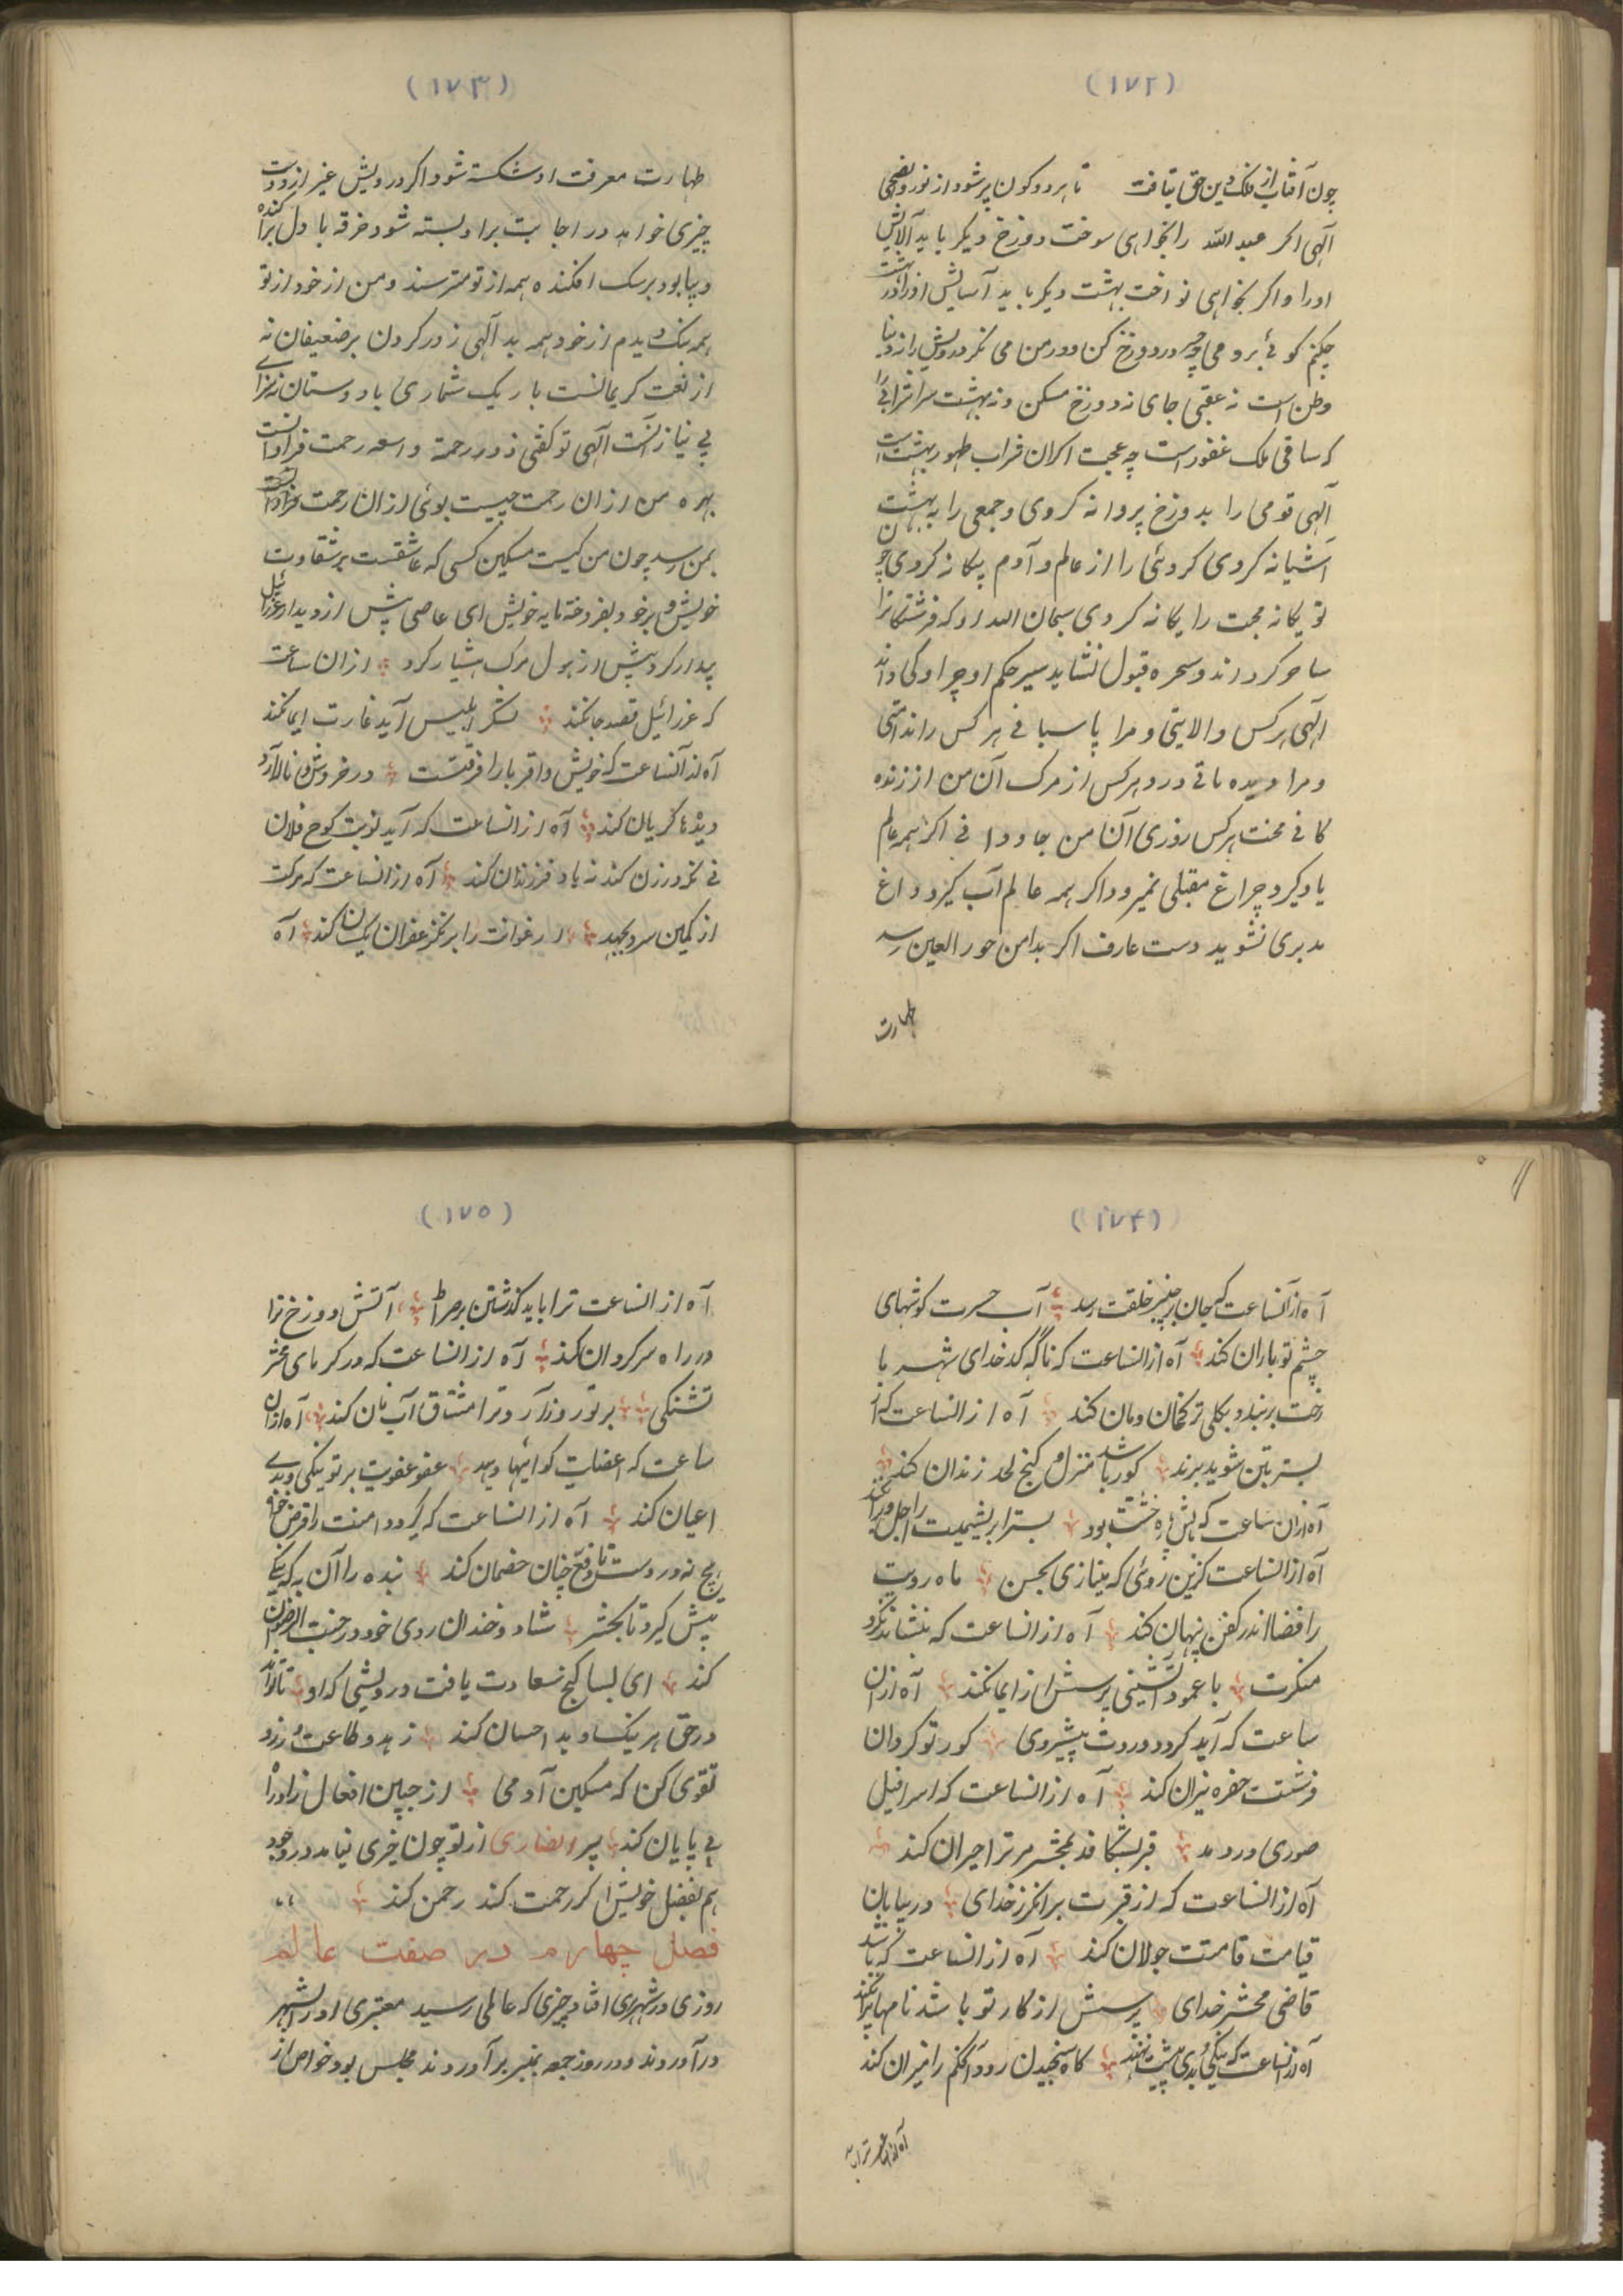 (۱۷۲)
چون آفتاب از فلک دین حق بتافت تا هر دو کون پر شود از نور والضحی
الهی اکر عبد الله را بخواهی سوخت دوزخ دیکر باید آلایش
اورا و اکر بخواهی نواخت بهشت دیکر باید آسایش اورا
چکنم کوئی برو می در دوزخ کن و در من می نکر درویش را نه دنیا
وطن است نه عقبی جای نه دوزخ مسکن و نه بهشت سرا
که ساقی ملک غفور است چه عجب اکر آن شراب طهور بهشت است
الهی قومی را بدوزخ پروانه کردی و جمعی را به بهشت
آشیانه کردی کروهی را از عالم و آدم بیکانه کردی چون
تو یکانه محبت را یکانه کردی سبحان الله او که فرشتکانرا
ساحر کرداند و سحره قبول نشاید سر حکم او چرا و کی داند
الهی هر کس را لایتی و مرا پاسبانی هر کس را ندامتی
و مرا دیده بانی درد هر کس از مرک آن من از زنده
کانی محنت هر کس روزی آن من جاودانی اکر همه عالم
باد کیرد چراغ مقبلی نمیرد و اکر همه عالم آب کیرد داغ
مدبری نشوید دست عارف اکر بدامن حور العین رسد
طهارت
(۱۷۳)
طهارت معرفت او شکسته شود و اکر درویش غیر از دوست
چیزی خواهد در اجابت برا و بسته شود خرقه با دل براکنده
دیبا بود بر سک افکنده همه از تو مترسند و من از خود از تو
همه نیک دیدم از خود همه بد الهی زور کردن بر ضعیفان نه
از نعت کریمانست باریک شماری با دوستان نه سزای
بی نیاز آنست الهی تو کفتی ذو رحمة واسعه رحمت فراوانست
بهره من از ان رحمت چیست بوئی از ان رحمت فراوان
بمن رسد چون من کیست مسکین کسی که عاشقست بر شقاوت
خویش و بر خود بفروخته مایه خویش ای عاصی پیش از دیدار عزرائیل
بیدار کرد پیش از هول مرک هشیار کرد از ان ساعت
که عزرائیل قصد جان کند لشکر ابلیس آید غارت ایمان کند
آه از آنساعت که خویش و اقربا را فرقتست در خروش و ناله آرد
دیدها کریان کند آه از انساعت که آید نوبت کوح فلان
نی نکه در زن کند نه یاد فرزندان کند آه از انساعت که مرکت
از کمین سر بجهد ارغوانت را برنک زعفران یکسان کند آه
(۱۷۴)
آه از آنساعت که جان بر خنبر خلقت رسد آب حسرت کوشهای
چشم تو باران کند آه از انساعت که ناکه کدخدای شهر با
رخت بر بندد و بکلی ترک خان و مان کند آه از انساعت که از
بستر بتن شوید برند کور باشد منزل و کنج لحد زندان کند
آه از ان ساعت که بالش پاره خشت بود بستر ابریشمینت را اجل ویران کند
آه از انساعت کزین روئی که مینازی بحسن ماه رویت
را قضا اندر کفن پنهان کند آه از انساعت که بنشاند نکرد
منکرت با عمود آتشینی پرسش از ایمان کند آه از ان
ساعت که آید کرد دورت پیش روی کور تو کردان
فرشتت حفره نیران کند آه از انساعت که اسرافیل
صوری در دمد قبر بشکافد بمحشر مر ترا حیران کند
آه از انساعت که از قبرت برانکیزد خدای در بیابان
قیامت قامتت جولان کند آه از انساعت که باشد
قاضی محشر خدای پرسش از کار تو باشد نامها پران کند
آه از انساعت که نیکی بدی پیشت نهند کاه سنجیدن رود و آنکهم را نیران کند
آه از انساعت ترا باید
(۱۷۵)
آه از انساعت ترا باید کذشتن بر صراط آتش دوزخ ترا
در راه سرکردان کند آه از انساعت که در کرمای محشر
تشنکی بر تو روز آرد و ترا مشتاق آب و نان کند آه از ان
ساعت که اعضایت کوایها دهد عفو عفویت بر تو نیکی و بدی
اعیان کند آه از انساعت که کیرد دامنت را قرض خواه
هیچ نه در دست تا دفع چنان خصمان کند بنده را آن به که نیکی
پیش کیرد تا بحشر شاد و خندان روی خود در جنت الرضوان
کند ای بسا کنج سعادت یافت درویشی که او تا تواند
در حق هر نیک و بد احسان کند زهد و طاعت ورزد
تقوی کن که مسکین آدمی از چنین افعال زاد راه
بی پایان کند پیر انصاری از تو چون خیری نیامد در وجود
هم بفضل خویش اکر رحمت کند رحمن کند
فصل چهارم در صفت عالم
روزی در شهری افتاد چیزی که عالمی رسید معتبری او را بشهر
در آوردند و در روز جمعه بمنبر بر آوردند مجلس بود خواص از